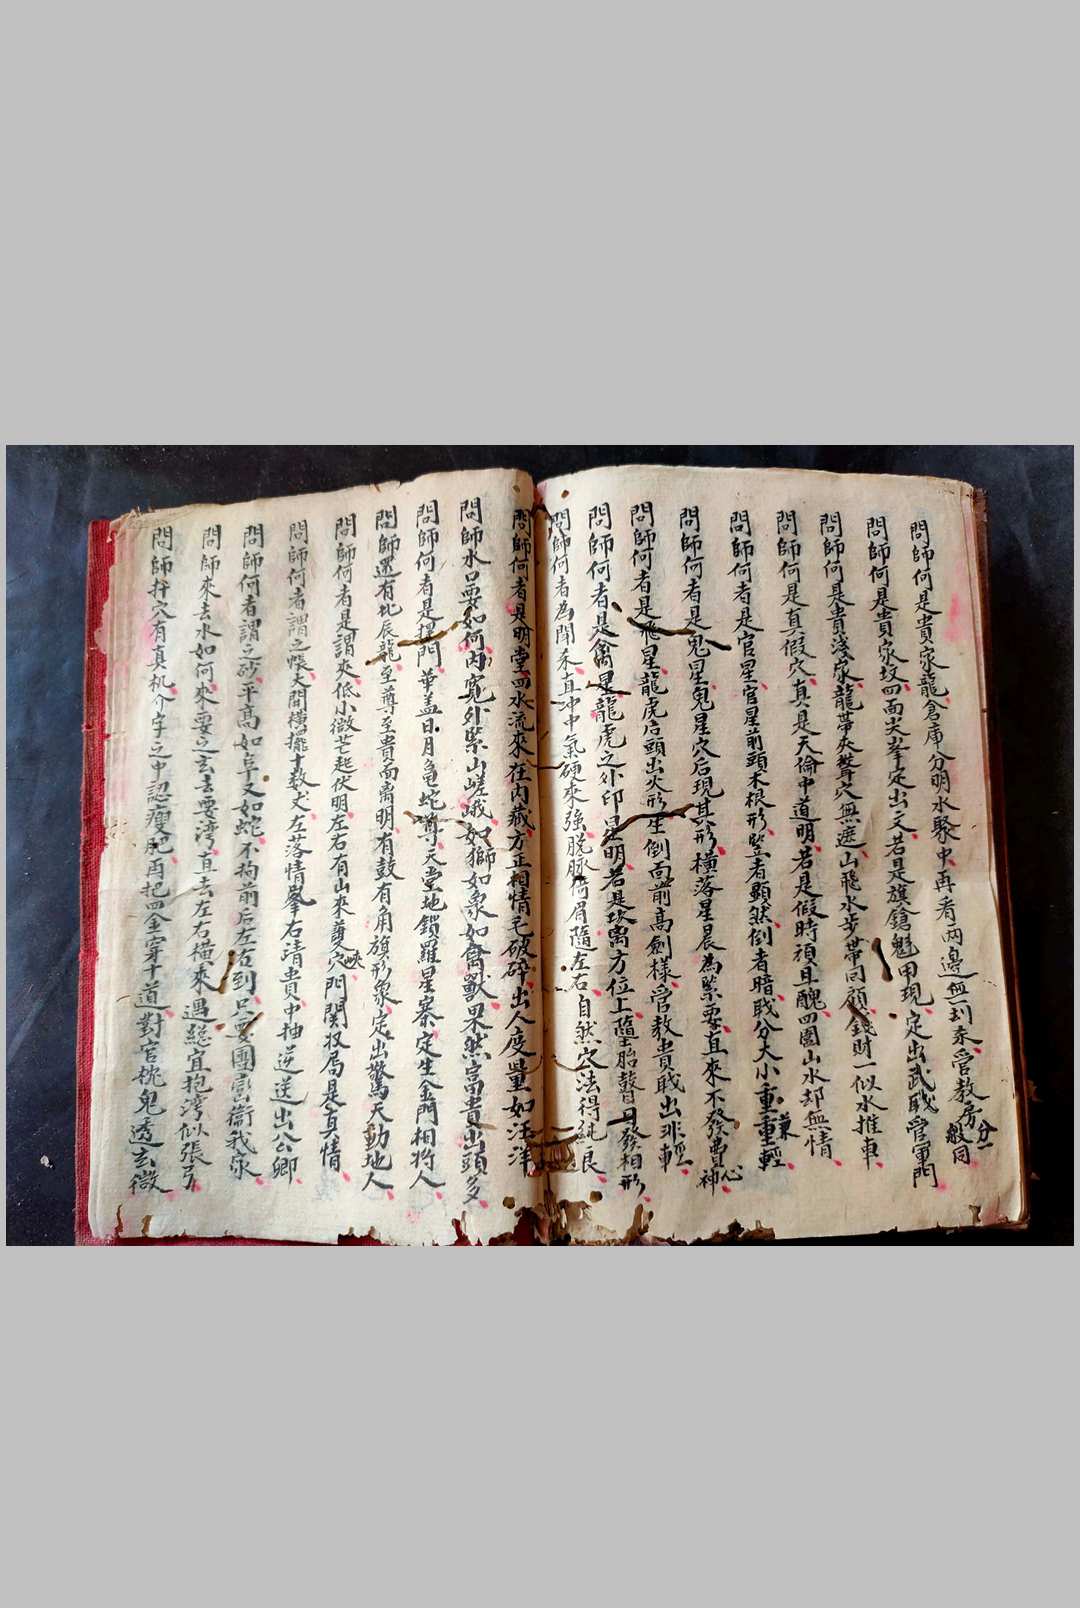 問師何是貴家龍倉庫分明水聚中再看兩邊無一到來管教房分一般同
問師何是貴家坟四面尖峯定出文若是旗鎗魁甲現定出武戝管軍門
問師何是貴淺家龍帶灰聳穴無遮山飛水步帶同願錢財一似水推車
問師何是真假穴真是天倫中道明若是假時頑且醜四圍山水却無情
問師何者是官星官星前頭木根形竪者顯然倒者暗戝分大小重兼重輕
問師何者是鬼星鬼星穴后現其形横落星晨為緊要直來不發費心神
問師何者是飛星龍虎后頭出火形生倒面前高劍樣管教貴戝出非輕
問師何者是禽星龍虎之外印星明若是坎离方位上墮胎瞽目發相形
問師何者為開禾直冲中氣硬來強脱脉倚肩隨左右自然穴法得純良
問師何者是明堂四水流來在内藏方正相情毛破碎出人度量如汪洋
問師水口要如何内寬外緊山嵯峨如獅如象如禽獸果然富貴出頭多
問師何者是捍門華盖日月龜蛇尊天堂地鎖羅星寨定生金門相將人
問師還有北辰龍至尊至貴面离明有鼓有角旗形象定出驚天動地人
問師何者是謂夾低小微芒起伏明左右有山來護穴門關收局是真情
問師何者謂之帳大開橫擺十数丈左落情峯右清貴中抽逆送出公卿
問師何者謂之砂平高如阜又如蛇不拘前后左右到只要團巒衞我家
問師來去水如何來要之玄去要湾直去左右橫來遇總宜抱湾似張弓
問師扦穴有真机介字之中認瘦肥再把四全穿十道對官枕鬼透玄微